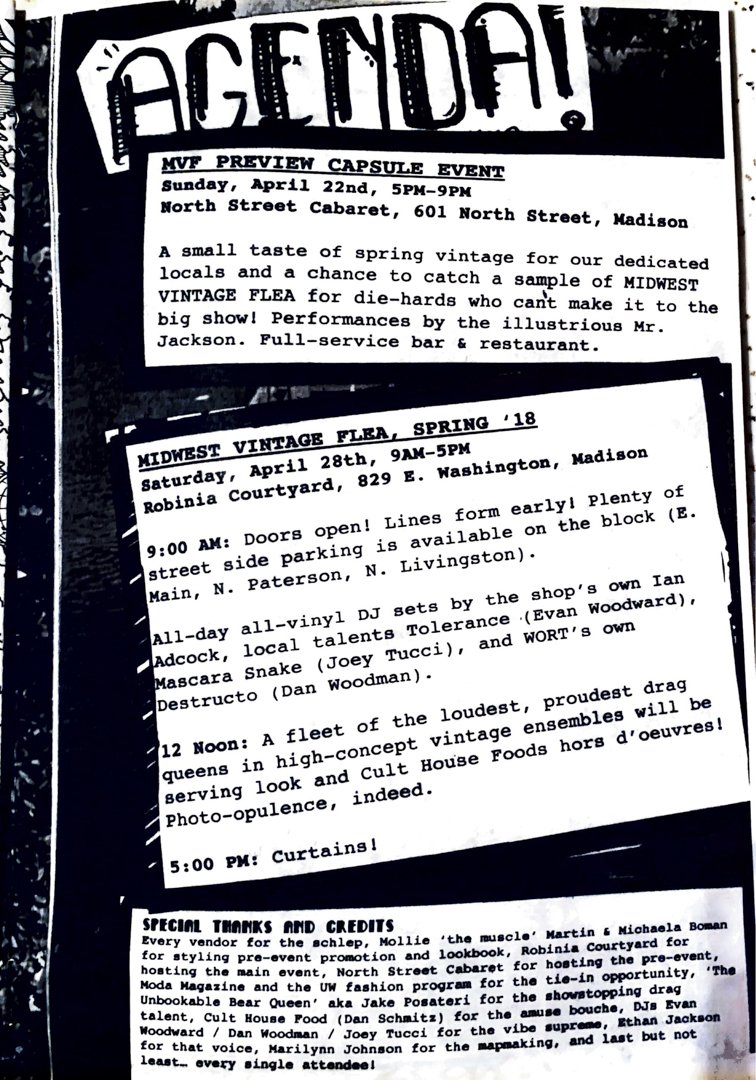 AGENDA!
MVF PREVIEW CAPSULE EVENT
Sunday, April 22nd, 5PM-9PM
North Street Cabaret, 601 North Street, Madison
A small taste of spring vintage for our dedicated
locals and a chance to catch a sample of MIDWEST
VINTAGE FLEA for die-hards who can't make it to the
big show! Performances by the illustrious Mr.
Jackson. Full-service bar & restaurant.
MIDWEST VINTAGE FLEA, SPRING '18
Saturday, April 28th, 9AM-5PM
Robinia Courtyard, 829 E. Washington, Madison
9:00 AM: Doors open! Lines form early! Plenty of
street side parking is available on the block (E.
Main, N. Paterson, N. Livingston).
All-day all-vinyl DJ sets by the shop's own Ian
Adcock, local talents Tolerance (Evan Woodward),
Mascara Snake (Joey Tucci), and WORT's own
Destructo (Dan Woodman).
12 Noon: A fleet of the loudest, proudest drag
queens in high-concept vintage ensembles will be
serving look and Cult House Foods hors d'oeuvres!
Photo-opulence, indeed.
5:00 PM: Curtains!
SPECIAL THANKS AND CREDITS
Every vendor for the schlep, Mollie 'the muscle' Martin & Michaela Boman
for styling pre-event promotion and lookbook, Robinia Courtyard for
hosting the main event, North Street Cabaret for hosting the pre-event,
Moda Magazine and the UW fashion program for the tie-in opportunity, 'The
Unbookable Bear Queen' aka Jake Posateri for the showstopping drag
talent, Cult House Food (Dan Schmitz) for the amuse bouche, DJs Evan
Woodward / Dan Woodman / Joey Tucci for the vibe supreme, Ethan Jackson
for that voice, Marilynn Johnson for the mapmaking, and last but not
least… every single attendee!